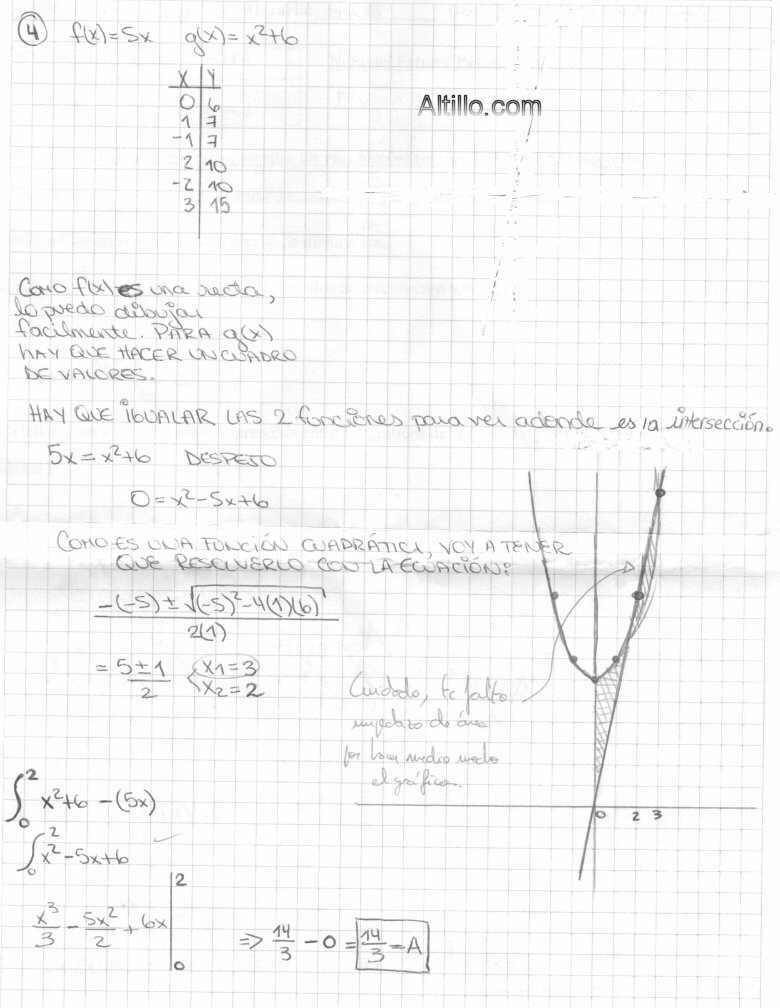 4 f(x)=5x g(x)=x²+6
x | y
0 | 6
1 | 7
-1 | 7
2 | 10
-2 | 10
3 | 15
Altillo.com
COMO f(x) es una recta,
lo puedo dibujar
facilmente. PARA g(x)
HAY QUE HACER UN CUADRO
DE VALORES.
HAY QUE IGUALAR LAS 2 funciones para ver adonde es la intersección.
5x = x²+6 DESPEJO
0 = x²-5x+6
COMO ES UNA FUNCIÓN CUADRÁTICA, VOY A TENER
QUE RESOLVERLO CON LA ECUACIÓN:
(-(-5) ± √((-5)²-4(1)(6)))/2(1)
= (5±1)/2 x1=3
x2=2
Cuidado, te falto
un pedazo de área
por hacer medio
el gráfico.
0 2 3
∫₀² x²+6 -(5x)
∫₀² x²-5x+6
x³/3 - 5x²/2 + 6x |₀²
=> 14/3 - 0 = 14/3 = A